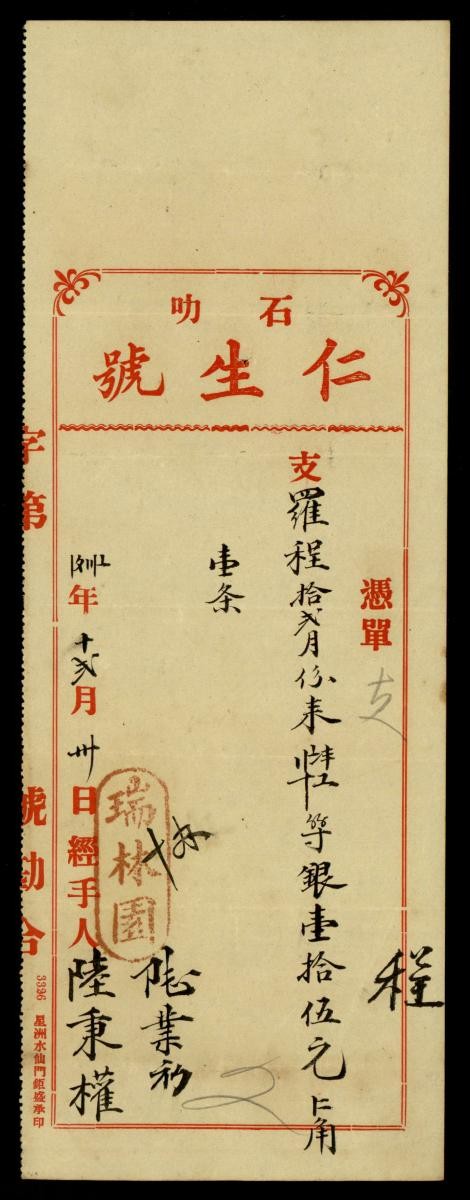 石叻
仁生號
憑單
程
支羅程拾弍月份来
等銀壹拾伍元
角
壹条
瑞林園
年十弍月卅日經手人陸秉權
字第
號勘合
3396 星洲水仙門鉅盛承印